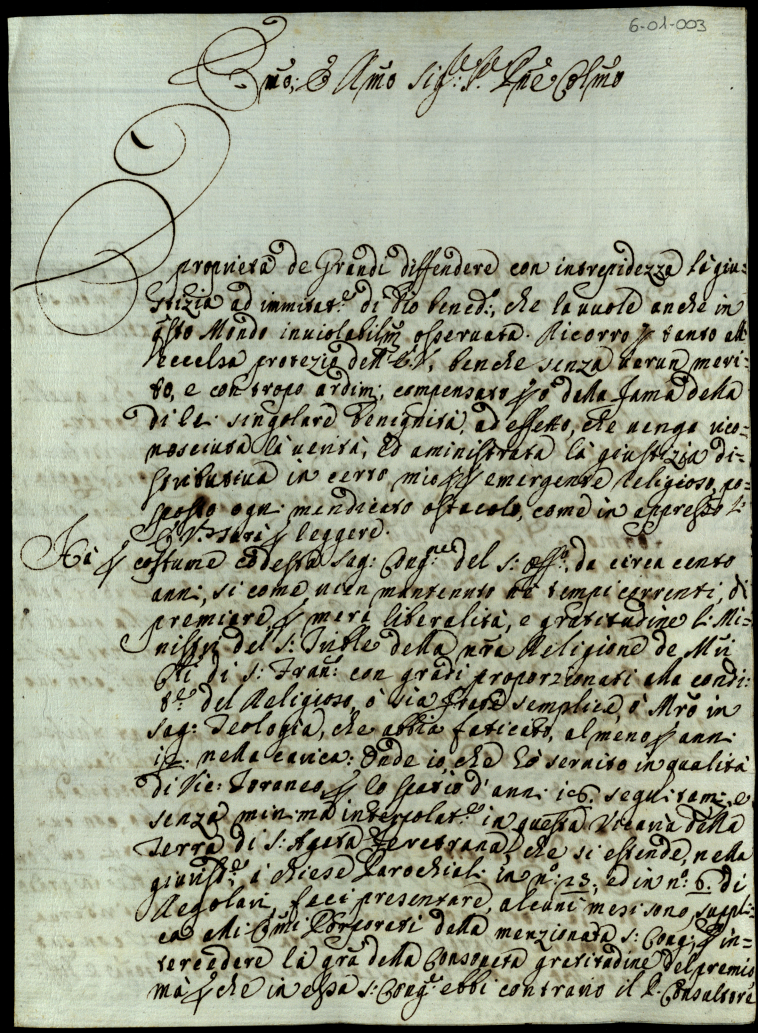 6-01-003
Emo; E Rmo Sig.r P.e Pne Colmo
È proprietà de Grandi diffendere con intrepidezza la giu-
stizia ad immitat.e di Dio bened:, che la vuole anche in
q̃sto Mondo inviolabilm̃ osservata. Ricorro ꝑ tanto all'
eccelsa protezio dell' E.V., benche senza verun meri-
to, e con tropo ardim:, compensato ꝑò dalla fama della
di lei singolare benignità, ad effetto, che venga rico-
nosciuta la verità, ed aministrata la giustizia di-
stributiva in certo mio emergente Religioso, po-
sposto ogni mendicato ostacolo, come in appresso L'
E.V. sarà ꝑ leggere.
Hà ꝑ costume codesta Sag: Cong.ne del S: Off.o da circa cento
anni, si come vien mantenuto ne tempi correnti, di
premiare, ꝑ mera liberalità, e gratitudine li Mi-
nistri del S: Tribłe della nr̃a Religione de Miñ
Cłi di S: Fran: con gradi proporzionati alla condi:
t.e del Religioso, ò sia frate semplice, ò Mr̃o in
Sag: Teologia, che abbia faticato, al meno ꝑ anni
12. nella carica: Onde io, che hò servito in qualità
di Vic: Foraneo ꝑ lo spatio d'anni 16. seguitam:e
senza minima interpolat.e in questa Vicaria della
Terra di S: Agata Feretrana, che si estende, nella
giurisd.e à chiese Parochiali in n.o 23, ed in n.o 6. di
Regolari, feci presentare, alcuni mesi sono, suppli-
ca alli Em̃i Porporati della menzionata S: Cong: ꝑ in-
tercedere la gr̃a della consopeta gratitudine del premio
mà ꝑche in essa S: Cong: ebbi contrario il P. Consultore